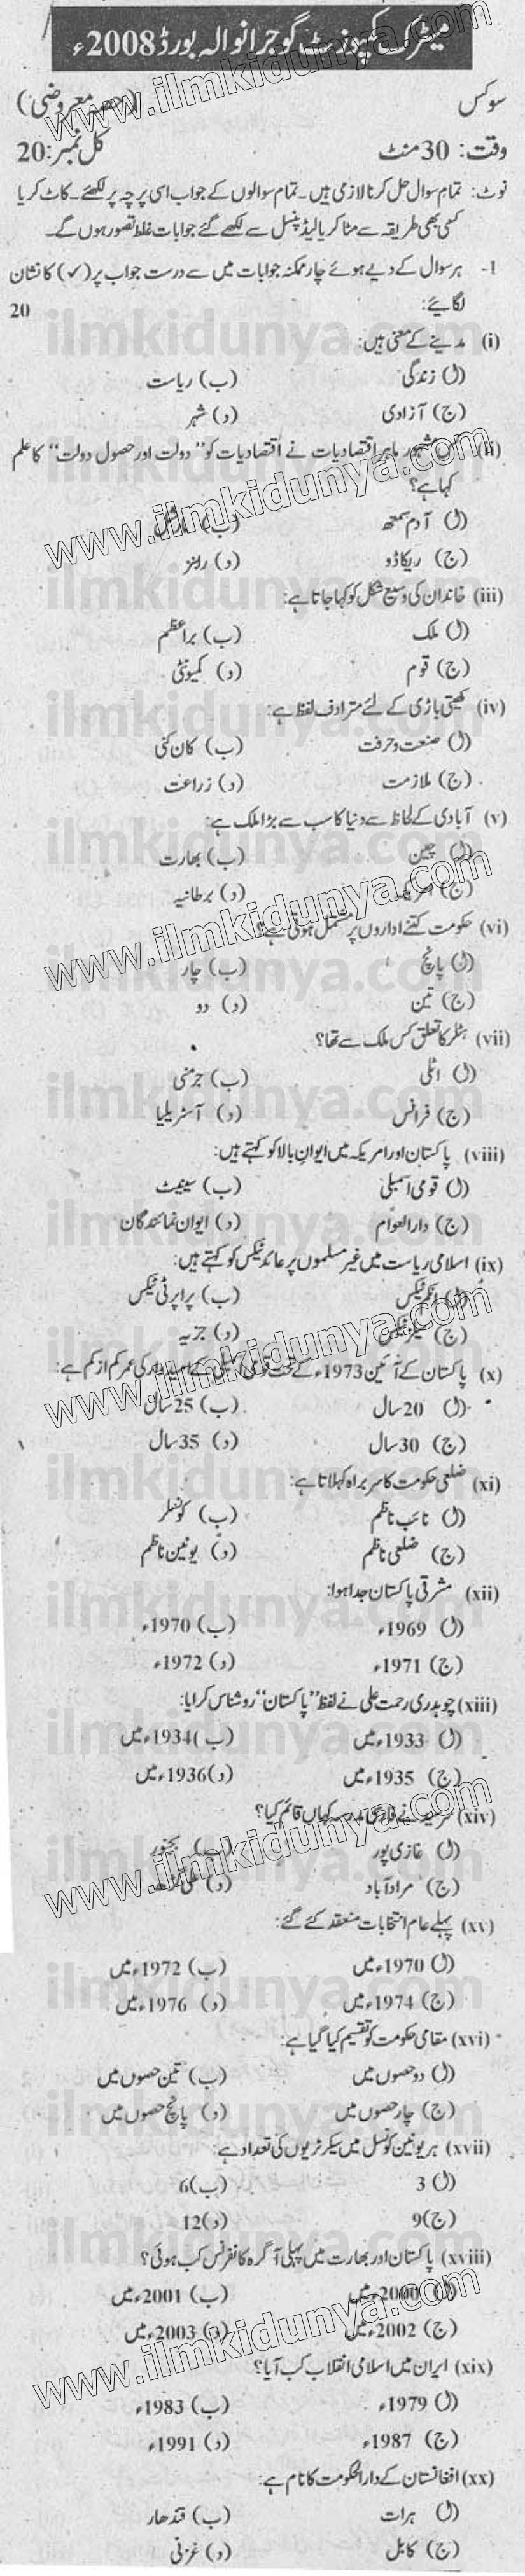 میٹرک کمپوزٹ گوجرانوالہ بورڈ 2008ء
سوکس (حصہ معروضی)
وقت: 30 منٹ کل نمبر: 20
نوٹ: تمام سوال حل کرنا لازمی ہیں۔ تمام سوالوں کے جواب اسی پرچہ پر لکھئے۔ کاٹ کر یا
کسی بھی طریقہ سے مٹا کر یا لیڈ پنسل سے لکھے گئے جوابات غلط تصور ہوں گے۔
1- ہر سوال کے دیے ہوئے چار ممکنہ جوابات میں سے درست جواب پر (✓) کا نشان
لگائیے: 20
(i) مدینے کے معنی ہیں:
(ا) زندگی (ب) ریاست
(ج) آزادی (د) شہر
(ii) مشہور ماہر اقتصادیات نے اقتصادیات کو "دولت اور حصول دولت" کا علم
کہا ہے؟
(ا) آدم سمتھ (ب) مارشل
(ج) ریکاڈو (د) رابنز
(iii) خاندان کی وسیع شکل کو کہا جاتا ہے:
(ا) ملک (ب) براعظم
(ج) قوم (د) کمیونٹی
(iv) کھیتی باڑی کے لئے مترادف لفظ ہے:
(ا) صنعت و حرفت (ب) کان کنی
(ج) ملازمت (د) زراعت
(v) آبادی کے لحاظ سے دنیا کا سب سے بڑا ملک ہے:
(ا) چین (ب) بھارت
(ج) امریکہ (د) برطانیہ
(vi) حکومت کتنے اداروں پر مشتمل ہوتی ہے؟
(ا) پانچ (ب) چار
(ج) تین (د) دو
(vii) ہٹلر کا تعلق کس ملک سے تھا؟
(ا) اٹلی (ب) جرمنی
(ج) فرانس (د) آسٹریلیا
(viii) پاکستان اور امریکہ میں ایوان بالا کو کہتے ہیں:
(ا) قومی اسمبلی (ب) سینیٹ
(ج) دارالعوام (د) ایوان نمائندگان
(ix) اسلامی ریاست میں غیر مسلموں پر عائد ٹیکس کو کہتے ہیں:
(ا) انکم ٹیکس (ب) پراپرٹی ٹیکس
(ج) سیلز ٹیکس (د) جزیہ
(x) پاکستان کے آئین 1973ء کے تحت قومی اسمبلی کے امیدوار کی عمر کم از کم ہے:
(ا) 20 سال (ب) 25 سال
(ج) 30 سال (د) 35 سال
(xi) ضلعی حکومت کا سربراہ کہلاتا ہے:
(ا) نائب ناظم (ب) کونسلر
(ج) ضلعی ناظم (د) یونین ناظم
(xii) مشرقی پاکستان جدا ہوا:
(ا) 1969ء (ب) 1970ء
(ج) 1971ء (د) 1972ء
(xiii) چوہدری رحمت علی نے لفظ "پاکستان" روشناس کرایا:
(ا) 1933ء میں (ب) 1934ء میں
(ج) 1935ء میں (د) 1936ء میں
(xiv) سرسید نے فارسی مدرسہ کہاں قائم کیا؟
(ا) غازی پور (ب) بجنور
(ج) مرادآباد (د) علی گڑھ
(xv) پہلے عام انتخابات منعقد کئے گئے:
(ا) 1970ء میں (ب) 1972ء میں
(ج) 1974ء میں (د) 1976ء میں
(xvi) مقامی حکومت کو تقسیم کیا گیا ہے:
(ا) دو حصوں میں (ب) تین حصوں میں
(ج) چار حصوں میں (د) پانچ حصوں میں
(xvii) ہر یونین کونسل میں سیکرٹریوں کی تعداد ہے:
(ا) 3 (ب) 6
(ج) 9 (د) 12
(xviii) پاکستان اور بھارت میں پہلی آگرہ کانفرنس کب ہوئی؟
(ا) 2000ء میں (ب) 2001ء میں
(ج) 2002ء میں (د) 2003ء میں
(xix) ایران میں اسلامی انقلاب کب آیا؟
(ا) 1979ء (ب) 1983ء
(ج) 1987ء (د) 1991ء
(xx) افغانستان کے دارالحکومت کا نام ہے:
(ا) ہرات (ب) قندھار
(ج) کابل (د) غزنی
www.ilmkidunya.com
ilmkidunya.com